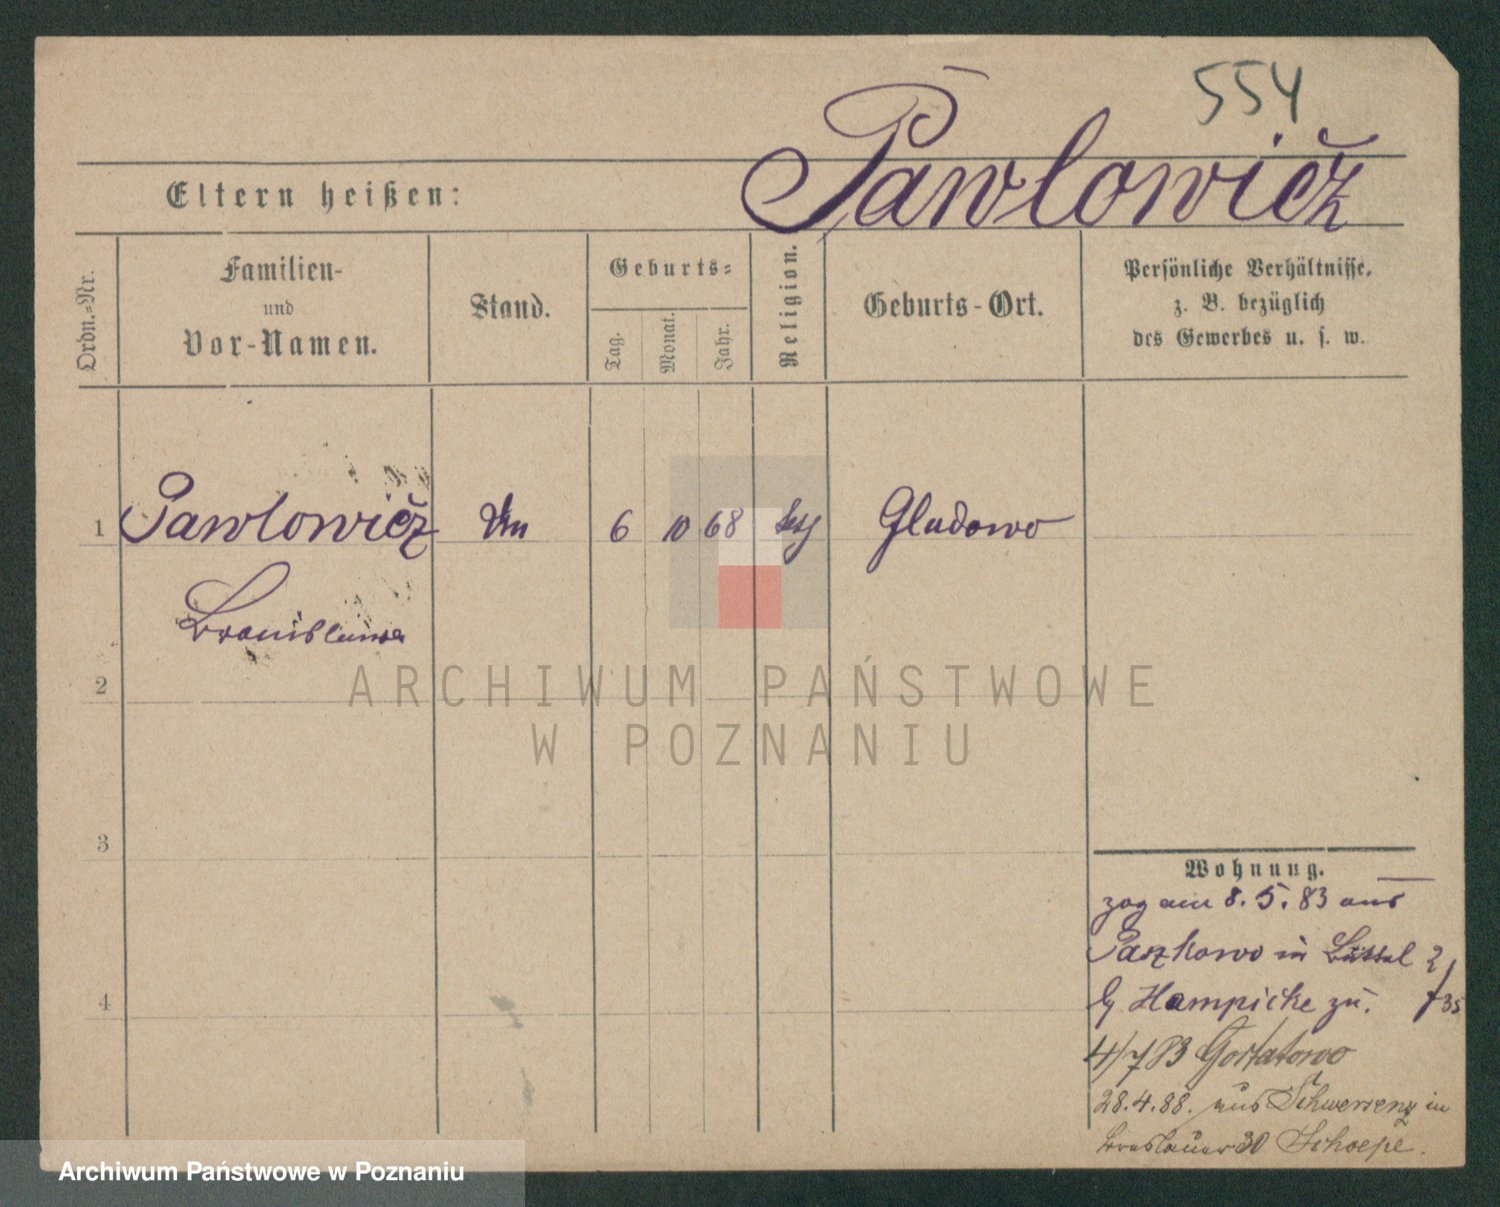 554
Pawlowicz
Eltern heißen:
Ordn.-Nr.
Familien-
und
Vor-Namen.
Stand.
Geburts-
Tag.
Monat.
Jahr.
Religion.
Geburts-Ort.
Persönliche Verhältnisse.
z. B. bezüglich
des Gewerbes u. s. w.
1 Pawlowicz 6 10 68 Gludowo
Bronislawa
2
3
4
ARCHIWUM PAŃSTWOWE
W POZNANIU
Wohnung.
zog am 8. 5. 83 aus
Paszkowo in
Hampicke zu.
4/7 83 Gortatowo
28.4.88. aus Schwersenz in
Breslauer 30
Archiwum Państwowe w Poznaniu